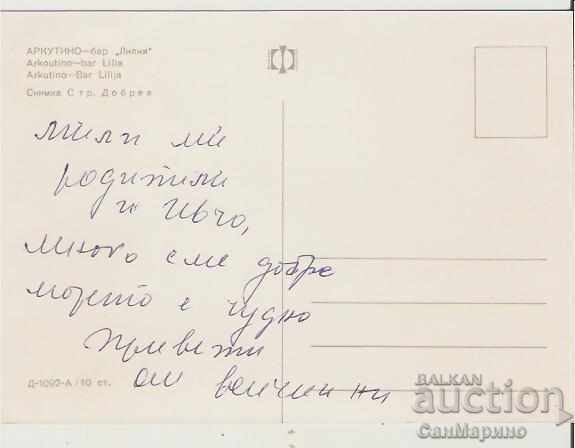 АРКУТИНО—бар „Лилия"
Arkoutino—bar Lilia
Arkutino—Bar Lilija
Снимка Стр. Добрев
Мили ми
родители
и Ивчо,
много сме добре
морето е чудно
Привети
от всички ни
Д-1092-А / 10 ст.
BALKAN
auction
СанМарино